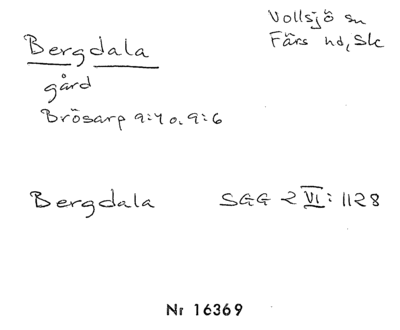 Vollsjö sn
Färs hd, Sk
Bergdala
gård
Brösarp 9:4 o. 9:6
Bergdala SGG 2 VI: 1128
Nr 16369